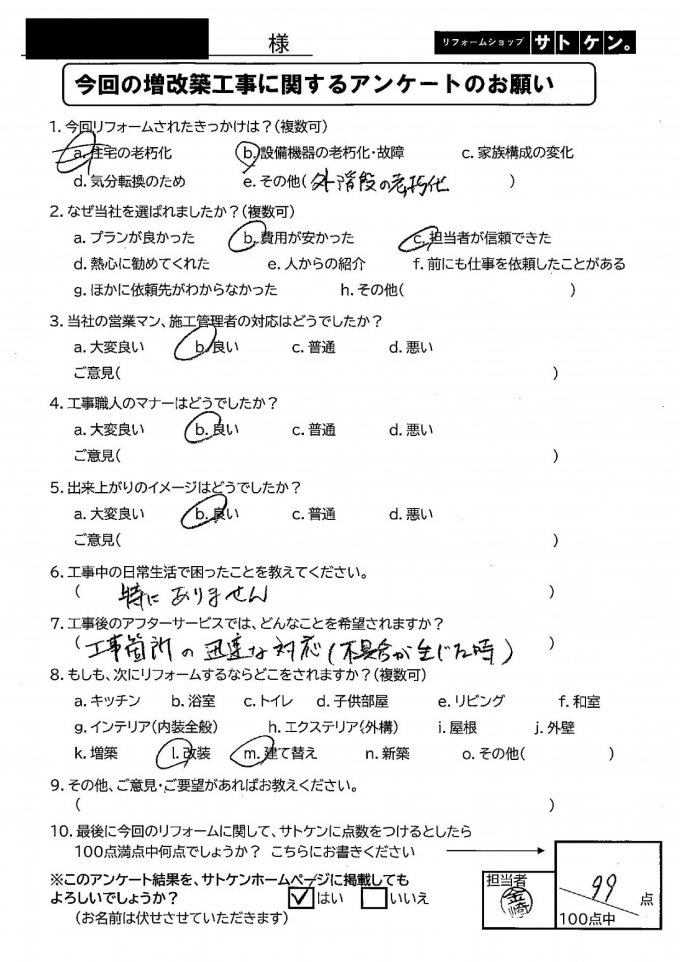 様
リフォームショップ サトケン。
今回の増改築工事に関するアンケートのお願い
1. 今回リフォームされたきっかけは?(複数可)
a. 住宅の老朽化 b. 設備機器の老朽化・故障 c. 家族構成の変化
d. 気分転換のため e. その他(外階段の老朽化)
2. なぜ当社を選ばれましたか?(複数可)
a. プランが良かった b. 費用が安かった c. 担当者が信頼できた
d. 熱心に勧めてくれた e. 人からの紹介 f. 前にも仕事を依頼したことがある
g. ほかに依頼先がわからなかった h. その他( )
3. 当社の営業マン、施工管理者の対応はどうでしたか?
a. 大変良い b. 良い c. 普通 d. 悪い
ご意見( )
4. 工事職人のマナーはどうでしたか?
a. 大変良い b. 良い c. 普通 d. 悪い
ご意見( )
5. 出来上がりのイメージはどうでしたか?
a. 大変良い b. 良い c. 普通 d. 悪い
ご意見( )
6. 工事中の日常生活で困ったことを教えてください。
( 特にありません )
7. 工事後のアフターサービスでは、どんなことを希望されますか?
( 工事箇所の迅速な対応(不具合が生じた時) )
8. もしも、次にリフォームするならどこをされますか?(複数可)
a. キッチン b. 浴室 c. トイレ d. 子供部屋 e. リビング f. 和室
g. インテリア(内装全般) h. エクステリア(外構) i. 屋根 j. 外壁
k. 増築 l. 改装 m. 建て替え n. 新築 o. その他( )
9. その他、ご意見・ご要望があればお教えください。
( )
10. 最後に今回のリフォームに関して、サトケンに点数をつけるとしたら
100点満点中何点でしょうか? こちらにお書きください
※このアンケート結果を、サトケンホームページに掲載しても
よろしいでしょうか? ☑はい □いいえ
(お名前は伏せさせていただきます)
担当者
金崎
99 点
100点中